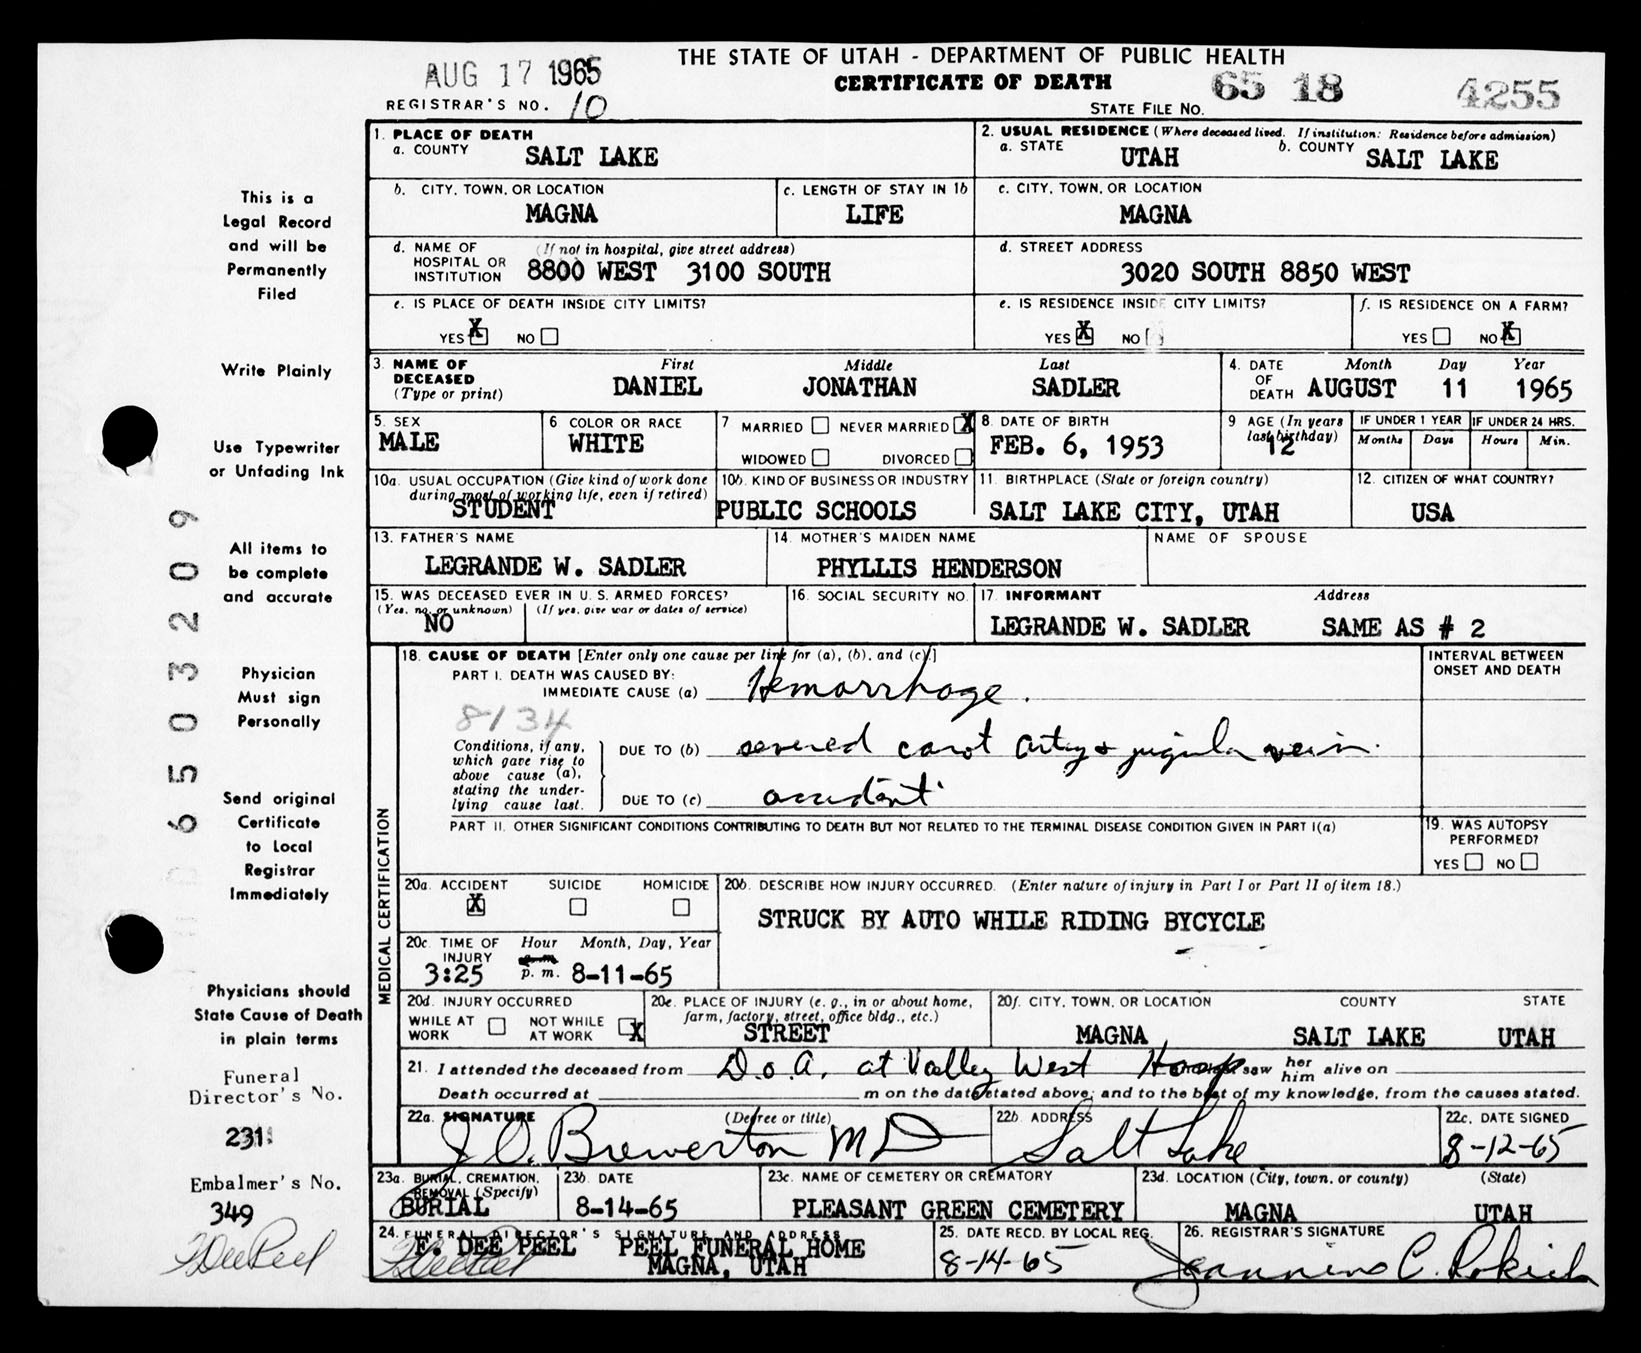 THE STATE OF UTAH - DEPARTMENT OF PUBLIC HEALTH
AUG 17 1965
CERTIFICATE OF DEATH 65 18 4255
REGISTRAR'S NO. 10 STATE FILE NO.
1. PLACE OF DEATH
a. COUNTY SALT LAKE
2. USUAL RESIDENCE (Where deceased lived. If institution: Residence before admission)
a. STATE UTAH b. COUNTY SALT LAKE
b. CITY, TOWN, OR LOCATION MAGNA
c. LENGTH OF STAY IN 1b LIFE
c. CITY, TOWN, OR LOCATION MAGNA
d. NAME OF HOSPITAL OR INSTITUTION (If not in hospital, give street address)
8800 WEST 3100 SOUTH
d. STREET ADDRESS
3020 SOUTH 8850 WEST
e. IS PLACE OF DEATH INSIDE CITY LIMITS?
YES X NO
e. IS RESIDENCE INSIDE CITY LIMITS?
YES X NO
f. IS RESIDENCE ON A FARM?
YES NO X
3. NAME OF DECEASED (Type or print)
First Middle Last
DANIEL JONATHAN SADLER
4. DATE OF DEATH Month Day Year
AUGUST 11 1965
5. SEX MALE
6 COLOR OR RACE WHITE
7 MARRIED NEVER MARRIED X
WIDOWED DIVORCED
8. DATE OF BIRTH
FEB. 6, 1953
9 AGE (In years last birthday) 12
IF UNDER 1 YEAR Months Days
IF UNDER 24 HRS. Hours Min.
10a. USUAL OCCUPATION (Give kind of work done during most of working life, even if retired)
STUDENT
10b. KIND OF BUSINESS OR INDUSTRY
PUBLIC SCHOOLS
11. BIRTHPLACE (State or foreign country)
SALT LAKE CITY, UTAH
12. CITIZEN OF WHAT COUNTRY?
USA
13. FATHER'S NAME
LEGRANDE W. SADLER
14. MOTHER'S MAIDEN NAME
PHYLLIS HENDERSON
NAME OF SPOUSE
15. WAS DECEASED EVER IN U.S. ARMED FORCES?
(Yes, no, or unknown) (If yes, give war or dates of service)
NO
16. SOCIAL SECURITY NO.
17. INFORMANT Address
LEGRANDE W. SADLER SAME AS # 2
MEDICAL CERTIFICATION
18. CAUSE OF DEATH [Enter only one cause per line for (a), (b), and (c).]
INTERVAL BETWEEN ONSET AND DEATH
PART I. DEATH WAS CAUSED BY:
IMMEDIATE CAUSE (a) Hemorrhage.
8134
Conditions, if any, which gave rise to above cause (a), stating the underlying cause last.
DUE TO (b) severed carot artey + jugular vein.
DUE TO (c) accident
PART II. OTHER SIGNIFICANT CONDITIONS CONTRIBUTING TO DEATH BUT NOT RELATED TO THE TERMINAL DISEASE CONDITION GIVEN IN PART I(a)
19. WAS AUTOPSY PERFORMED?
YES NO
20a. ACCIDENT SUICIDE HOMICIDE
X
20b. DESCRIBE HOW INJURY OCCURRED. (Enter nature of injury in Part I or Part II of item 18.)
STRUCK BY AUTO WHILE RIDING BYCYCLE
20c. TIME OF INJURY Hour Month, Day, Year
a.m.
3:25 p. m. 8-11-65
20d. INJURY OCCURRED
WHILE AT WORK NOT WHILE AT WORK X
20e. PLACE OF INJURY (e. g., in or about home, farm, factory, street, office bldg., etc.)
STREET
20f. CITY, TOWN, OR LOCATION COUNTY STATE
MAGNA SALT LAKE UTAH
21. I attended the deceased from D.o.A. at Valley West Hosp saw her him alive on
Death occurred at m on the date stated above; and to the best of my knowledge, from the causes stated.
22a. SIGNATURE (Degree or title)
J O. Brewerton MD
22b. ADDRESS
Salt Lake
22c. DATE SIGNED
8-12-65
23a. BURIAL, CREMATION, REMOVAL (Specify)
BURIAL
23b. DATE
8-14-65
23c. NAME OF CEMETERY OR CREMATORY
PLEASANT GREEN CEMETERY
23d. LOCATION (City, town, or county) (State)
MAGNA UTAH
24. FUNERAL DIRECTOR'S SIGNATURE AND ADDRESS
F. DEE PEEL PEEL FUNERAL HOME
MAGNA, UTAH
F Dee Peel
25. DATE RECD. BY LOCAL REG.
8-14-65
26. REGISTRAR'S SIGNATURE
Jeannine C. Rokich
This is a
Legal Record
and will be
Permanently
Filed
Write Plainly
Use Typewriter
or Unfading Ink
All items to
be complete
and accurate
Physician
Must sign
Personally
Send original
Certificate
to Local
Registrar
Immediately
Physicians should
State Cause of Death
in plain terms
Funeral
Director's No.
231
Embalmer's No.
349
F Dee Peel
6 5 0 3 2 0 9